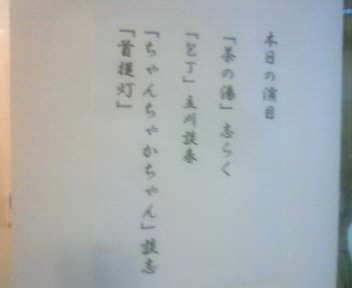 本日の演目
「茶の湯」志らく
「包丁」立川談春
「ちゃんちゃかちゃん」談志
「首提灯」